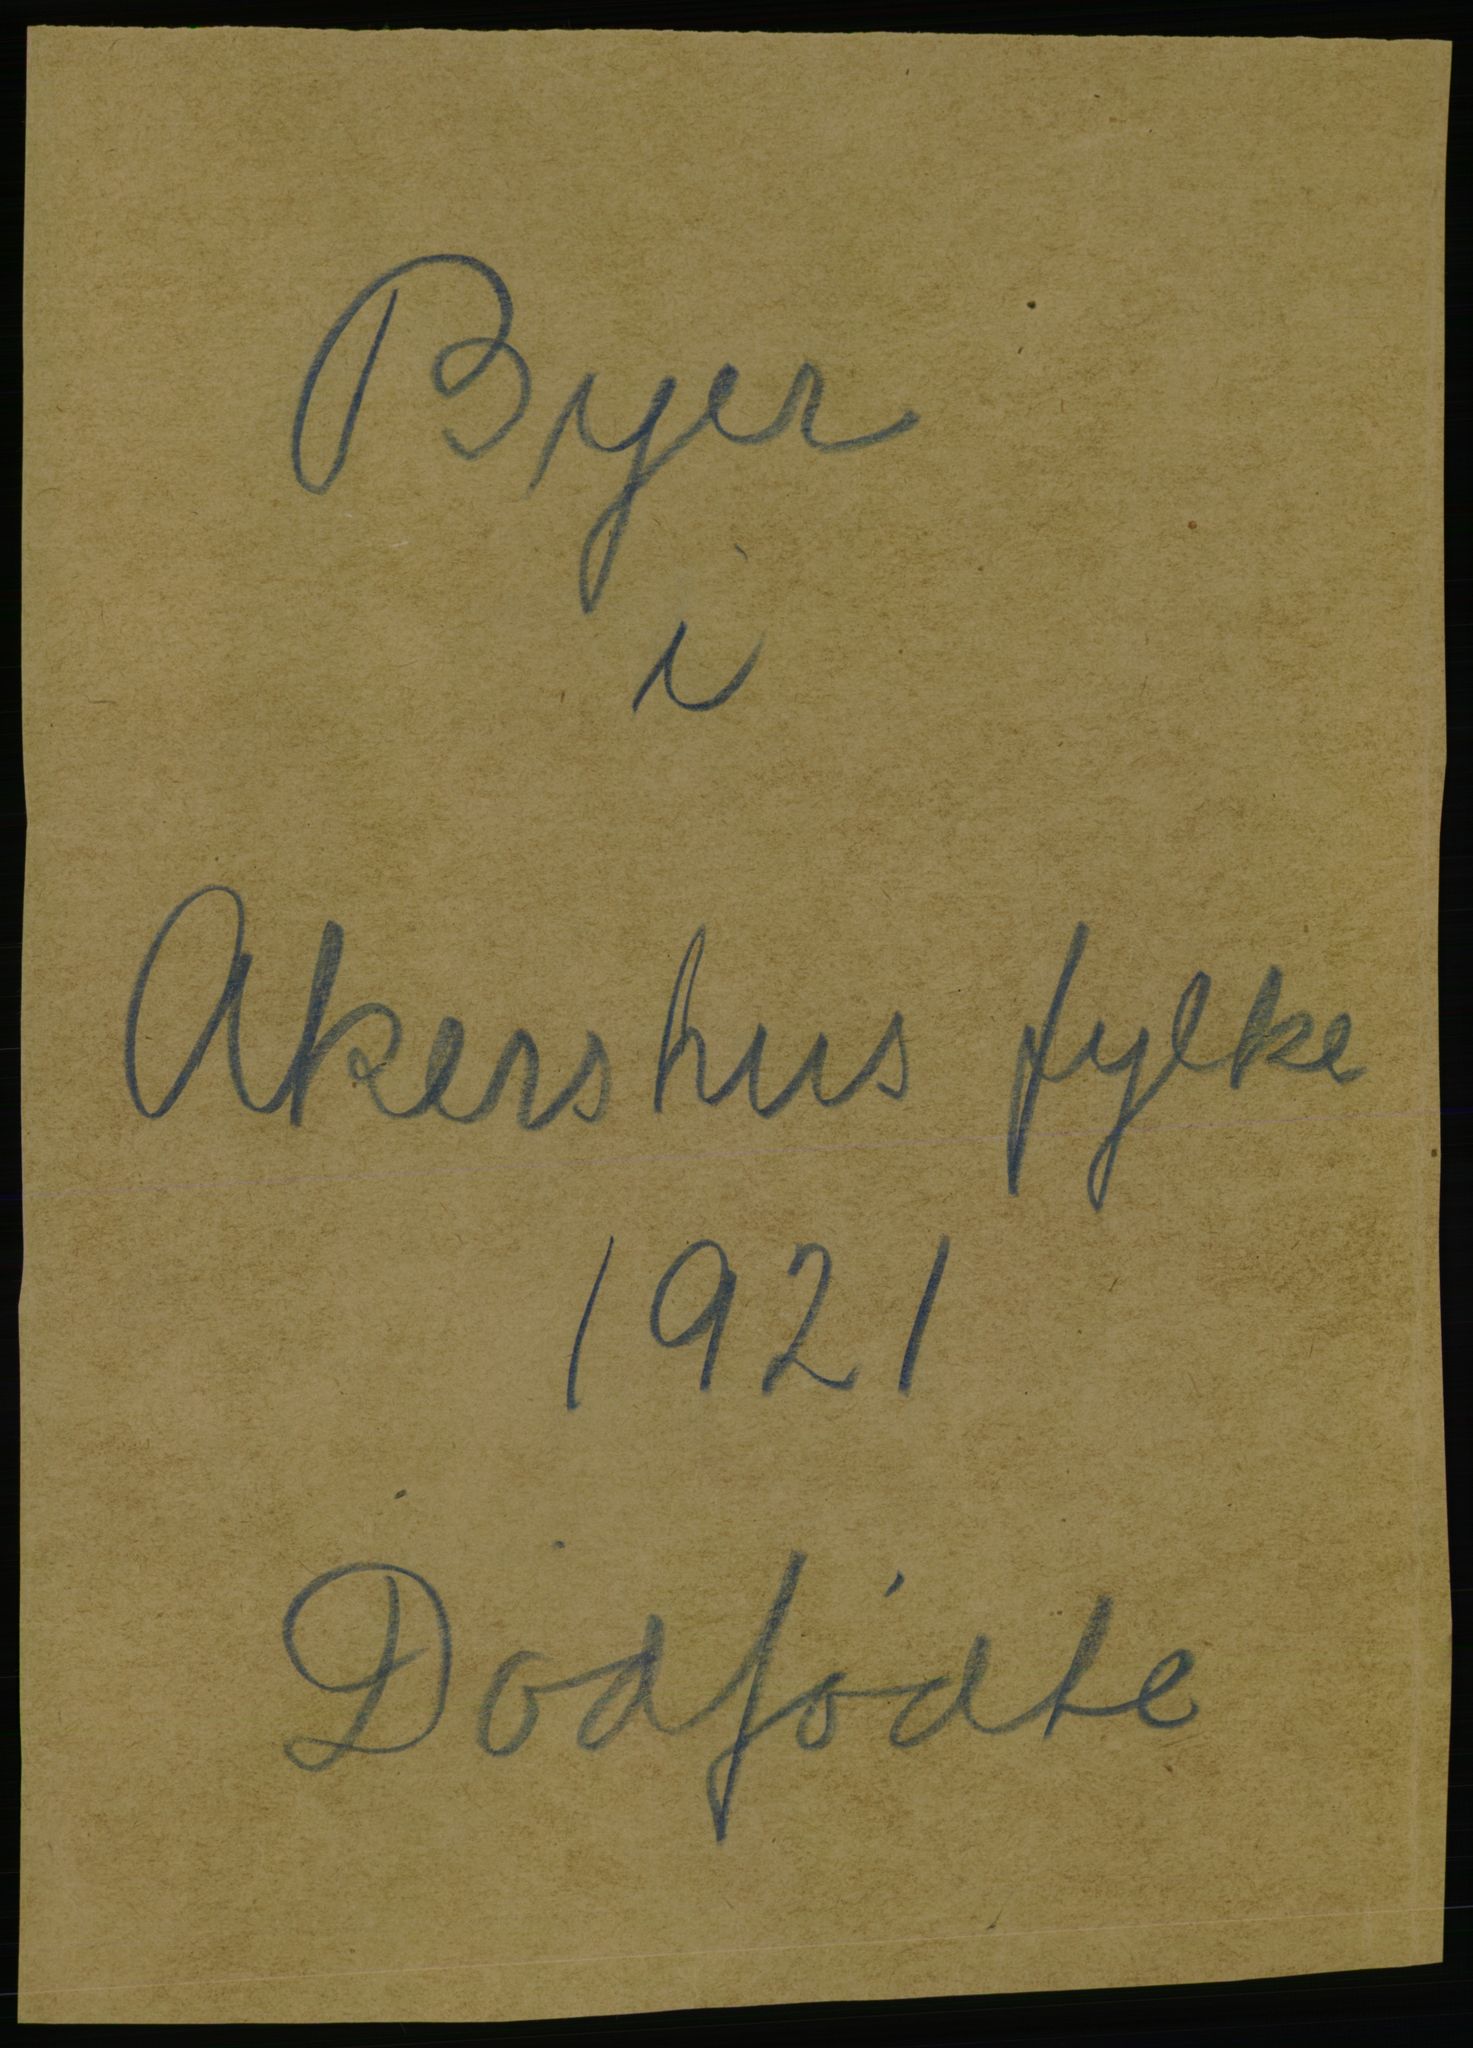 Byer
i
Akershus fylke
1921
Dødfødte